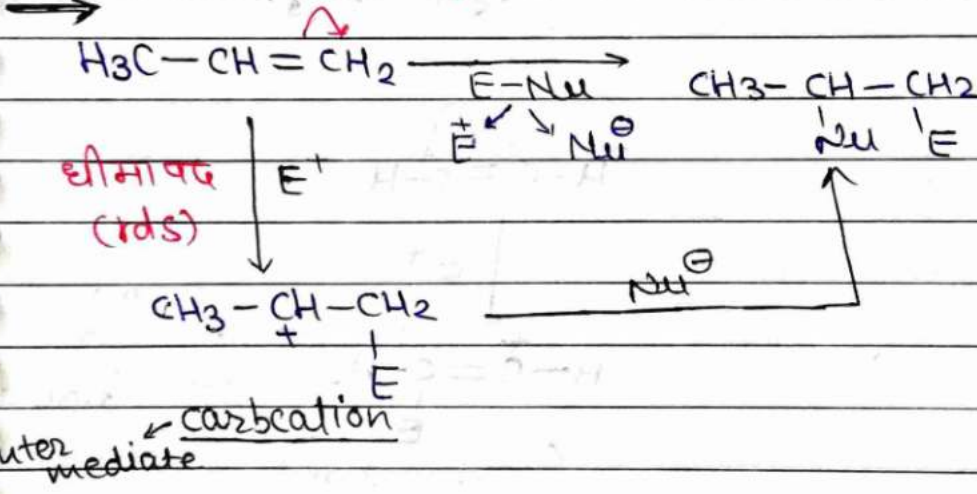 H3C-CH=CH2 E-Nu CH3-CH-CH2
E+ Nu⊖ Nu E
धीमा पद E+
(rds)
Nu⊖
CH3-CH-CH2
+
E
carbcation
uter
mediate